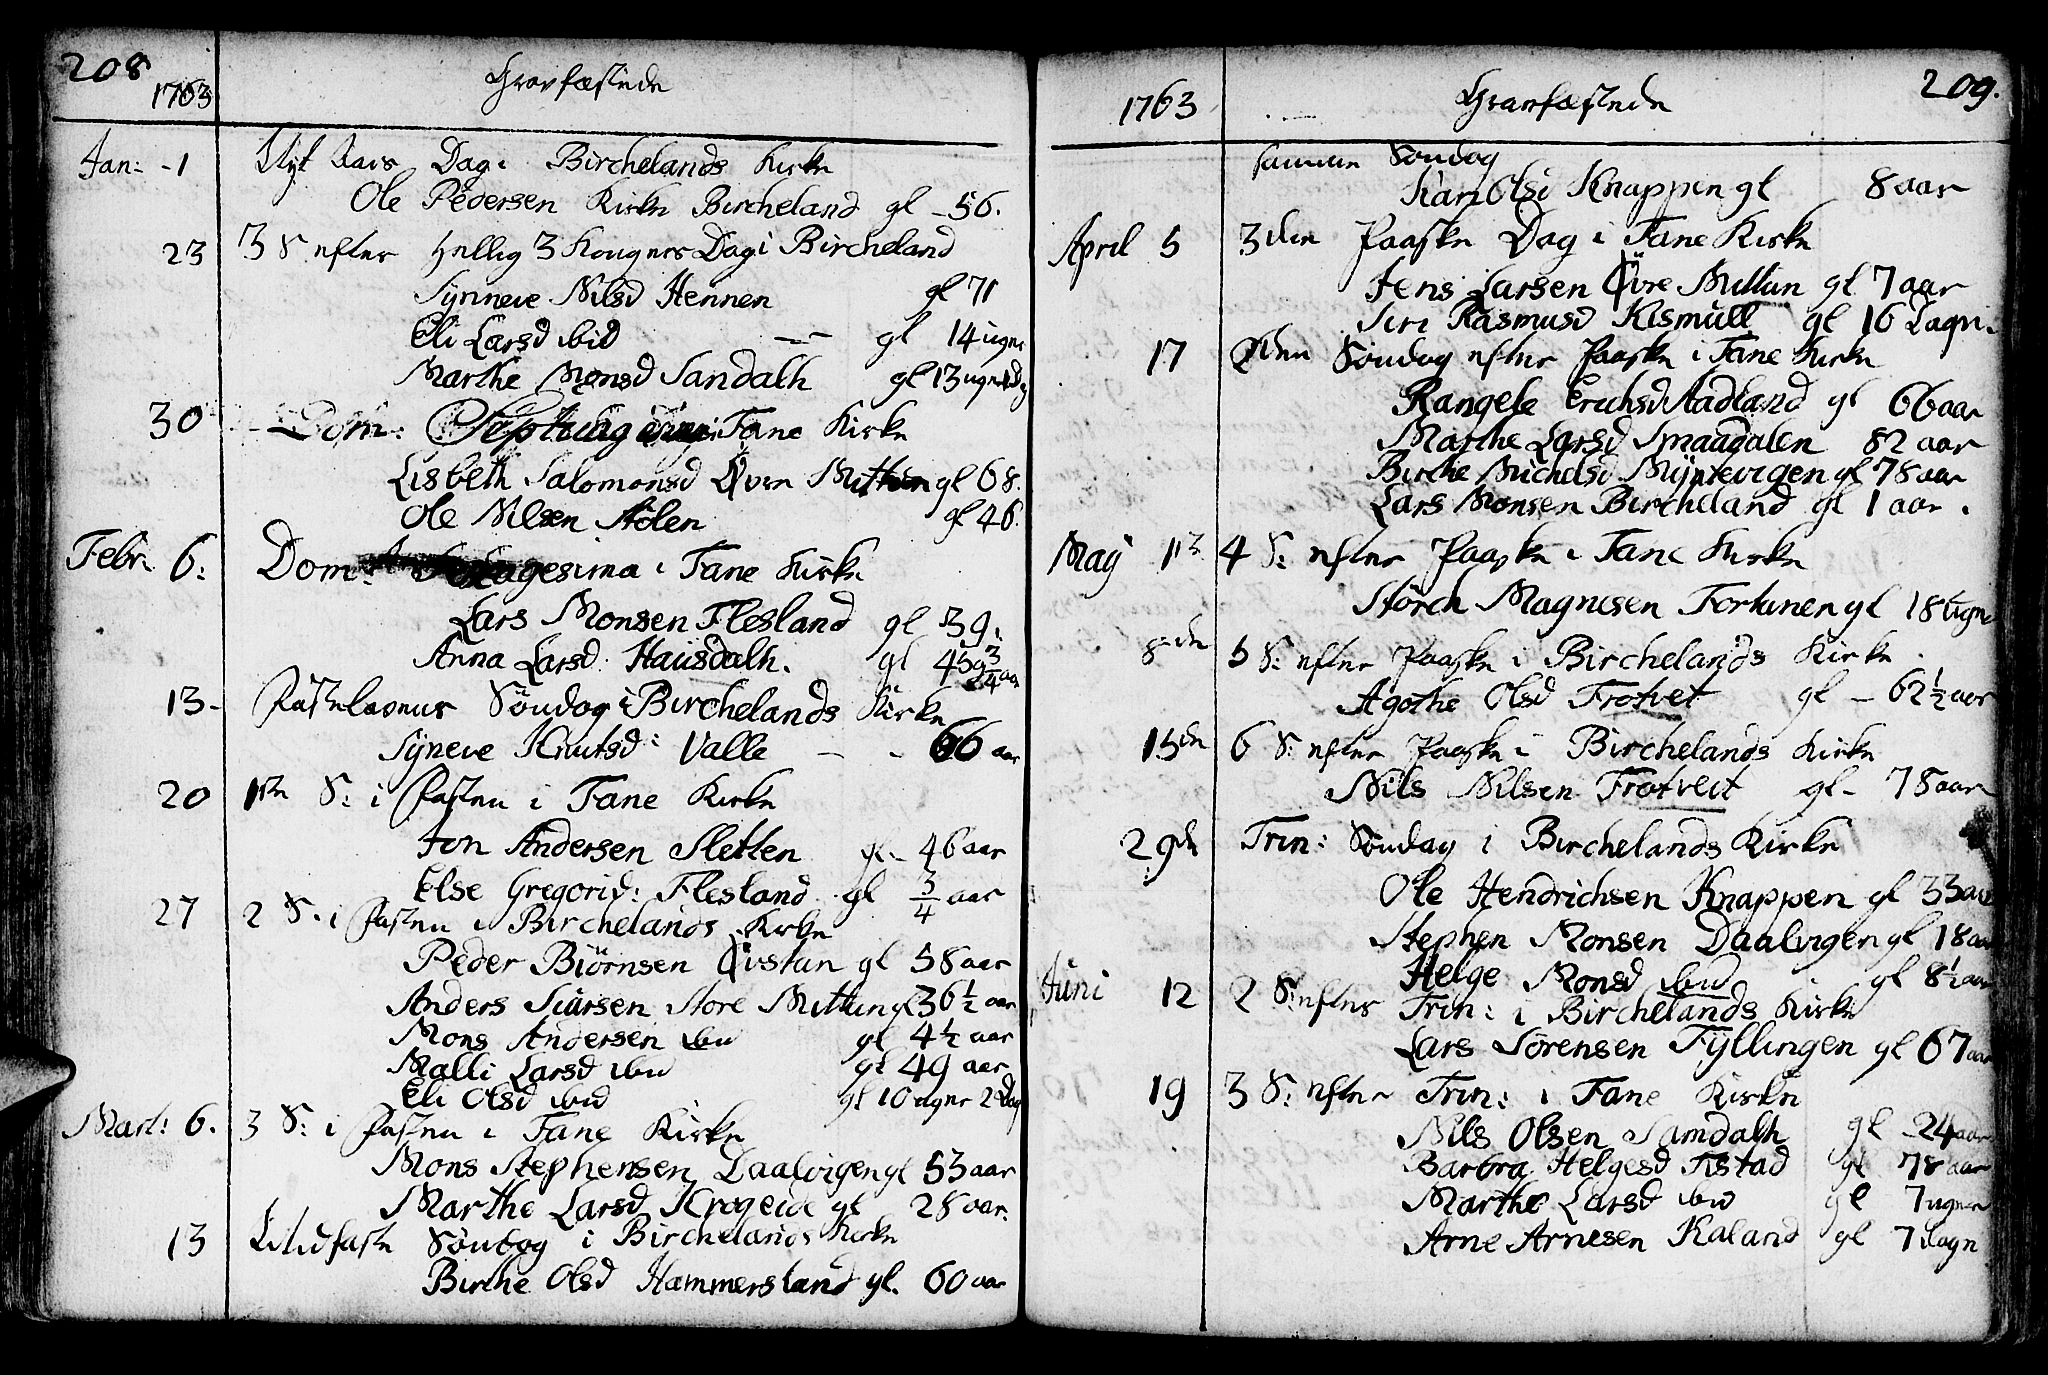 208
1763 Gravfæstede
Jan: - 1 Nyt Aars Dag i Birchelands Kirke
Ole Pedersen Kirke Bircheland gl - 56.
23 3 S. efter Hellig 3 Kongers Dag i Bircheland
Synneve Nilsd Hennen gl 71
Eli Larsd ibid gl 14 uger
Marthe Monsd Sandalh gl 13 uger
30 Dom: i Fane Kirke
Lisbeth Salomonsd Øvre Mittun gl 68.
Ole Nilsen Stölen gl 46.
Febr. 6. Dom: Sexagesima i Fane Kirke
Lars Monsen Flesland gl 39.
Anna Larsd: Hausdalh. gl 45 3/4 aar
13 - Fastelavens Söndag i Birchelands Kirke
Syneve Knutsd: Valle - - 66 aar
20 1ste S: i Fasten i Fane Kirke
Jon Andersen Sletten gl. 46 aar
Else Gregorid: Flesland gl 3/4 aar
27 2 S. i Fasten i Birchelands Kirke
Peder Biörnsen Øvstun gl 58 aar
Anders Siursen Store Mittun gl 36 1/2 aar
Mons Andersen ibid gl 4 1/2 aar
Malli Larsd ibid gl 49 aar
Eli Olsd ibid gl 10 uger 2 Dag
Mart: 6. 3 S: i Fasten i Fane Kirke
Mons Stephensen Daalvigen gl 53 aar
Marthe Larsd Krogeide gl 28 aar.
13 Midfaste Söndag i Birchelands Kirke
Birthe Olsd Hammersland gl. 60 aar
209.
1763 Gravfæstede
samme Söndag
Kari Olsd Knappen gl 8 aar
April 5 3die Paaske Dag i Fane Kirke
Jens Larsen Øvre Mittun gl 7 aar
Siri Rasmusd Kismull gl 16 Dage.
17 2den Söndag efter Paaske i Fane Kirke
Rangele Erichsd Aadland gl 66 aar
Marthe Larsd Smaadalen 82 aar
Birthe Michelsd Myntevigen gl 78 aar
Lars Monsen Bircheland gl 1 aar.
May 1 4 S: efter Paaske i Fane Kirke
Störch Magnesen Fortunen gl 18 Uger
8de 5 S: efter Paaske i Birchelands Kirke.
Agothe Olsd Trotvet gl - 62 1/2 aar
15de 6 S: efter Paaske i Birchelands Kirke
Nils Nilsen Trotveit gl - 78 aar
29de Trin: Söndag i Birchelands Kirke
Ole Hendrichsen Knappen gl 33 aar
Stephen Monsen Daalvigen gl 18 aar
Helge Monsd ibid gl 8 1/2 aar
Juni 12 2 S: efter Trin: i Birchelands Kirke
Lars Sörensen Fyllingen gl 67 aar
19 3 S: efter Trin: i Fane Kirke
Nils Olsen Samdalh gl 24 aar
Barbra Helgesd Titstad gl 78 aar
Marthe Larsd ibid gl 7 uger
Arne Arnesen Kaland gl 7 dage